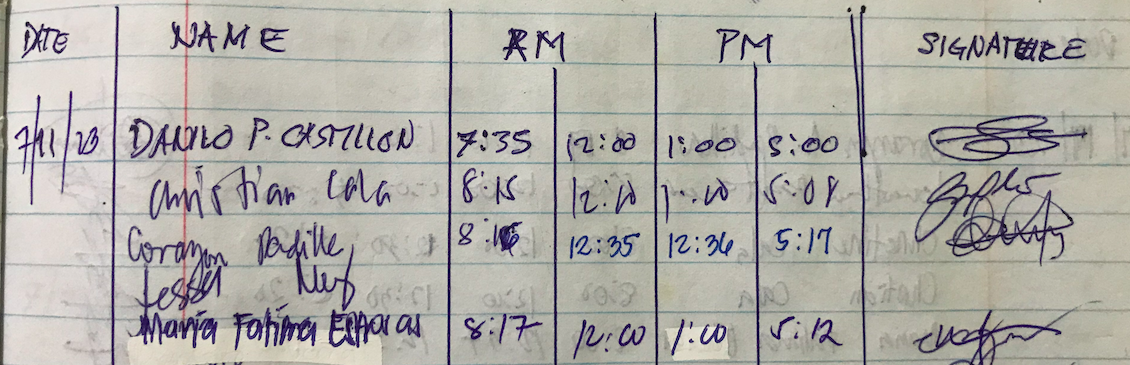 DATE NAME AM PM SIGNATURE
7/11/23 DANILO P. CASTILLON 7:35 12:00 1:00 5:00
Christian Cala 8:15 12:10 1:00 5:08
Corazon Padilla 8:16 12:35 12:36 5:17
Maria Fatima 8:17 12:00 1:00 5:12